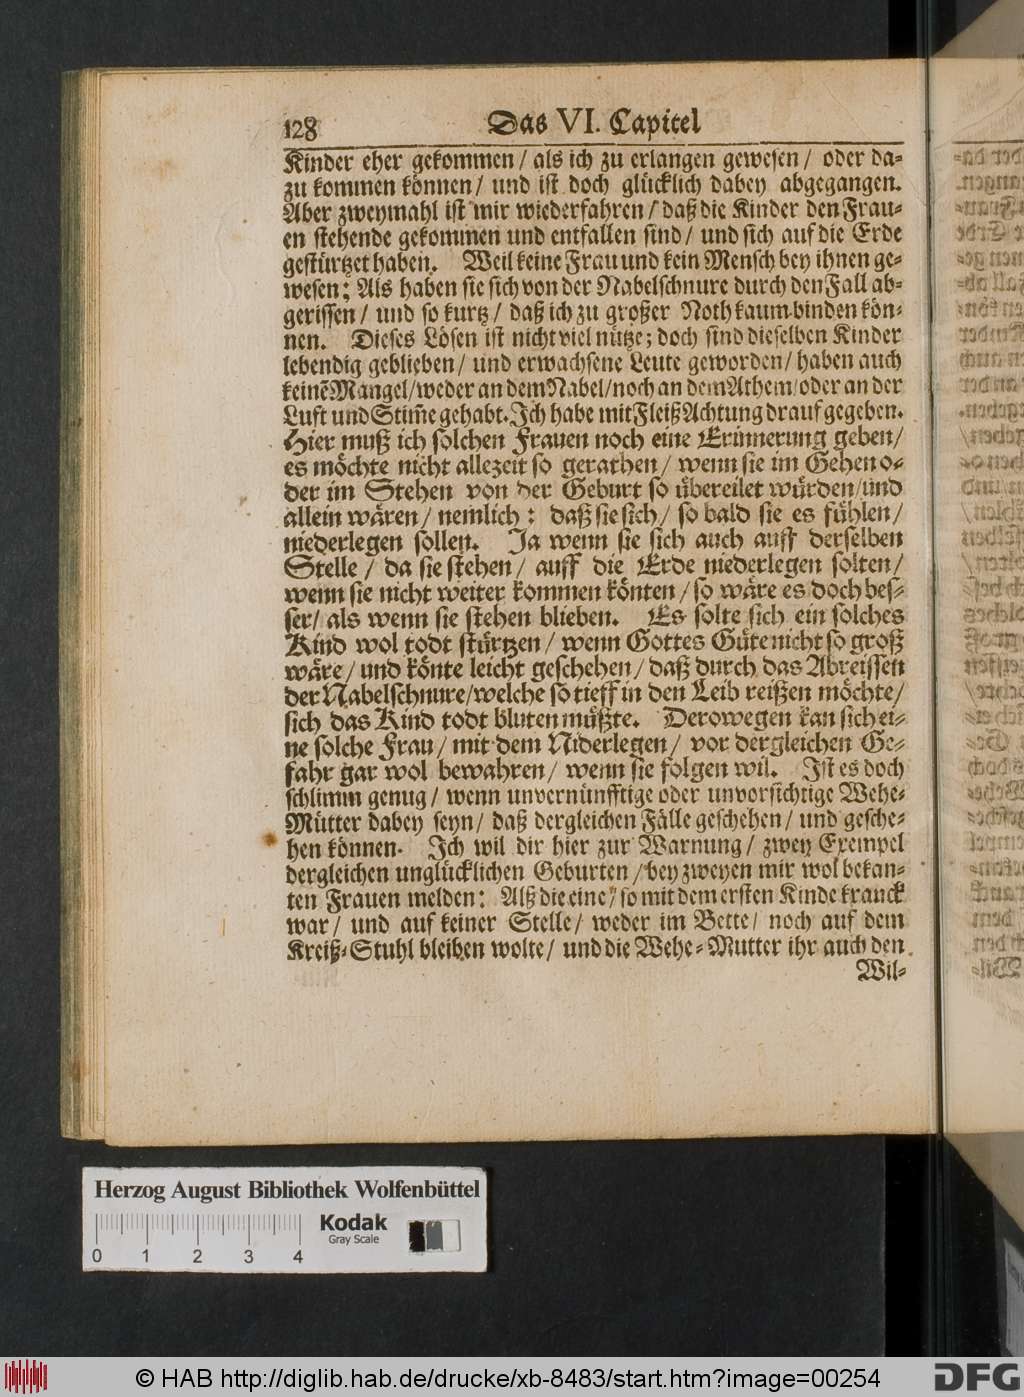 128 Das VI. Capitel
Kinder eher gekommen / als ich zu erlangen gewesen / oder da-
zu kommen können / und ist doch glücklich dabey abgegangen.
Aber zweymahl ist mir wiederfahren / daß die Kinder den Frau-
en stehende gekommen und entfallen sind / und sich auf die Erde
gestürtzet haben. Weil keine Frau und kein Mensch bey ihnen ge-
wesen; Als haben sie sich von der Nabelschnure durch den Fall ab-
gerissen / und so kurtz / daß ich zu großer Noth kaum binden kön-
nen. Dieses Lösen ist nicht viel nütze; doch sind dieselben Kinder
lebendig geblieben / und erwachsene Leute geworden / haben auch
keinē Mangel / weder an dem Nabel / noch an dem Athem / oder an der
Luft und Stim̃e gehabt. Ich habe mit Fleiß Achtung drauf gegeben.
Hier muß ich solchen Frauen noch eine Erinnerung geben /
es möchte nicht allezeit so gerathen / wenn sie im Gehen o-
der im Stehen von der Geburt so übereilet würden / und
allein wären / nemlich: daß sie sich / so bald sie es fühlen /
niederlegen sollen. Ja wenn sie sich auch auff derselben
Stelle / da sie stehen / auff die Erde niederlegen solten /
wenn sie nicht weiter kommen könten / so wäre es doch bes-
ser / als wenn sie stehen blieben. Es solte sich ein solches
Kind wol todt stürtzen / wenn Gottes Güte nicht so groß
wäre / und könte leicht geschehen / daß durch das Abreissen
der Nabelschnure / welche so tieff in den Leib reißen möchte /
sich das Kind todt bluten müßte. Derowegen kan sich ei-
ne solche Frau / mit dem Niderlegen / vor dergleichen Ge-
fahr gar wol bewahren / wenn sie folgen wil. Ist es doch
schlimm genug / wenn unvernünfftige oder unvorsichtige Wehe-
Mütter dabey seyn / daß dergleichen Fälle geschehen / und gesche-
hen können. Ich wil dir hier zur Warnung / zwey Exempel
dergleichen unglücklichen Geburten / bey zweyen mir wol bekan-
ten Frauen melden: Alß die eine / so mit dem ersten Kinde kranck
war / und auf keiner Stelle / weder im Bette / noch auf dem
Kreiß-Stuhl bleiben wolte / und die Wehe-Mutter ihr auch den
Wil-
Herzog August Bibliothek Wolfenbüttel
Kodak
Gray Scale
0 1 2 3 4
© HAB http://diglib.hab.de/drucke/xb-8483/start.htm?image=00254
DFG